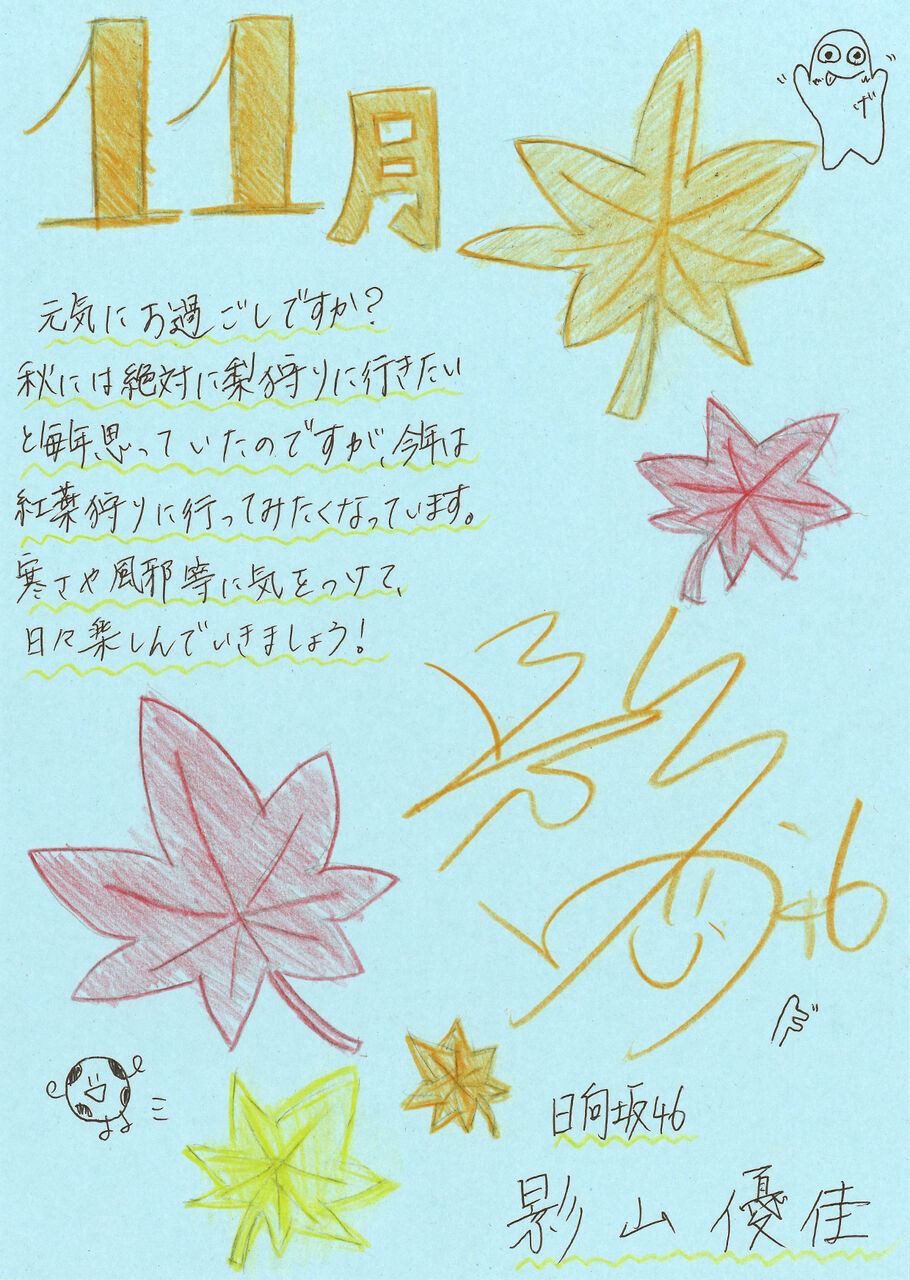 11月
げ
元気にお過ごしですか？
秋には絶対に梨狩りに行きたい
と毎年思っていたのですが、今年は
紅葉狩りに行ってみたくなっています。
寒さや風邪等に気をつけて、
日々楽しんでいきましょう！
46
日向坂46
影山優佳